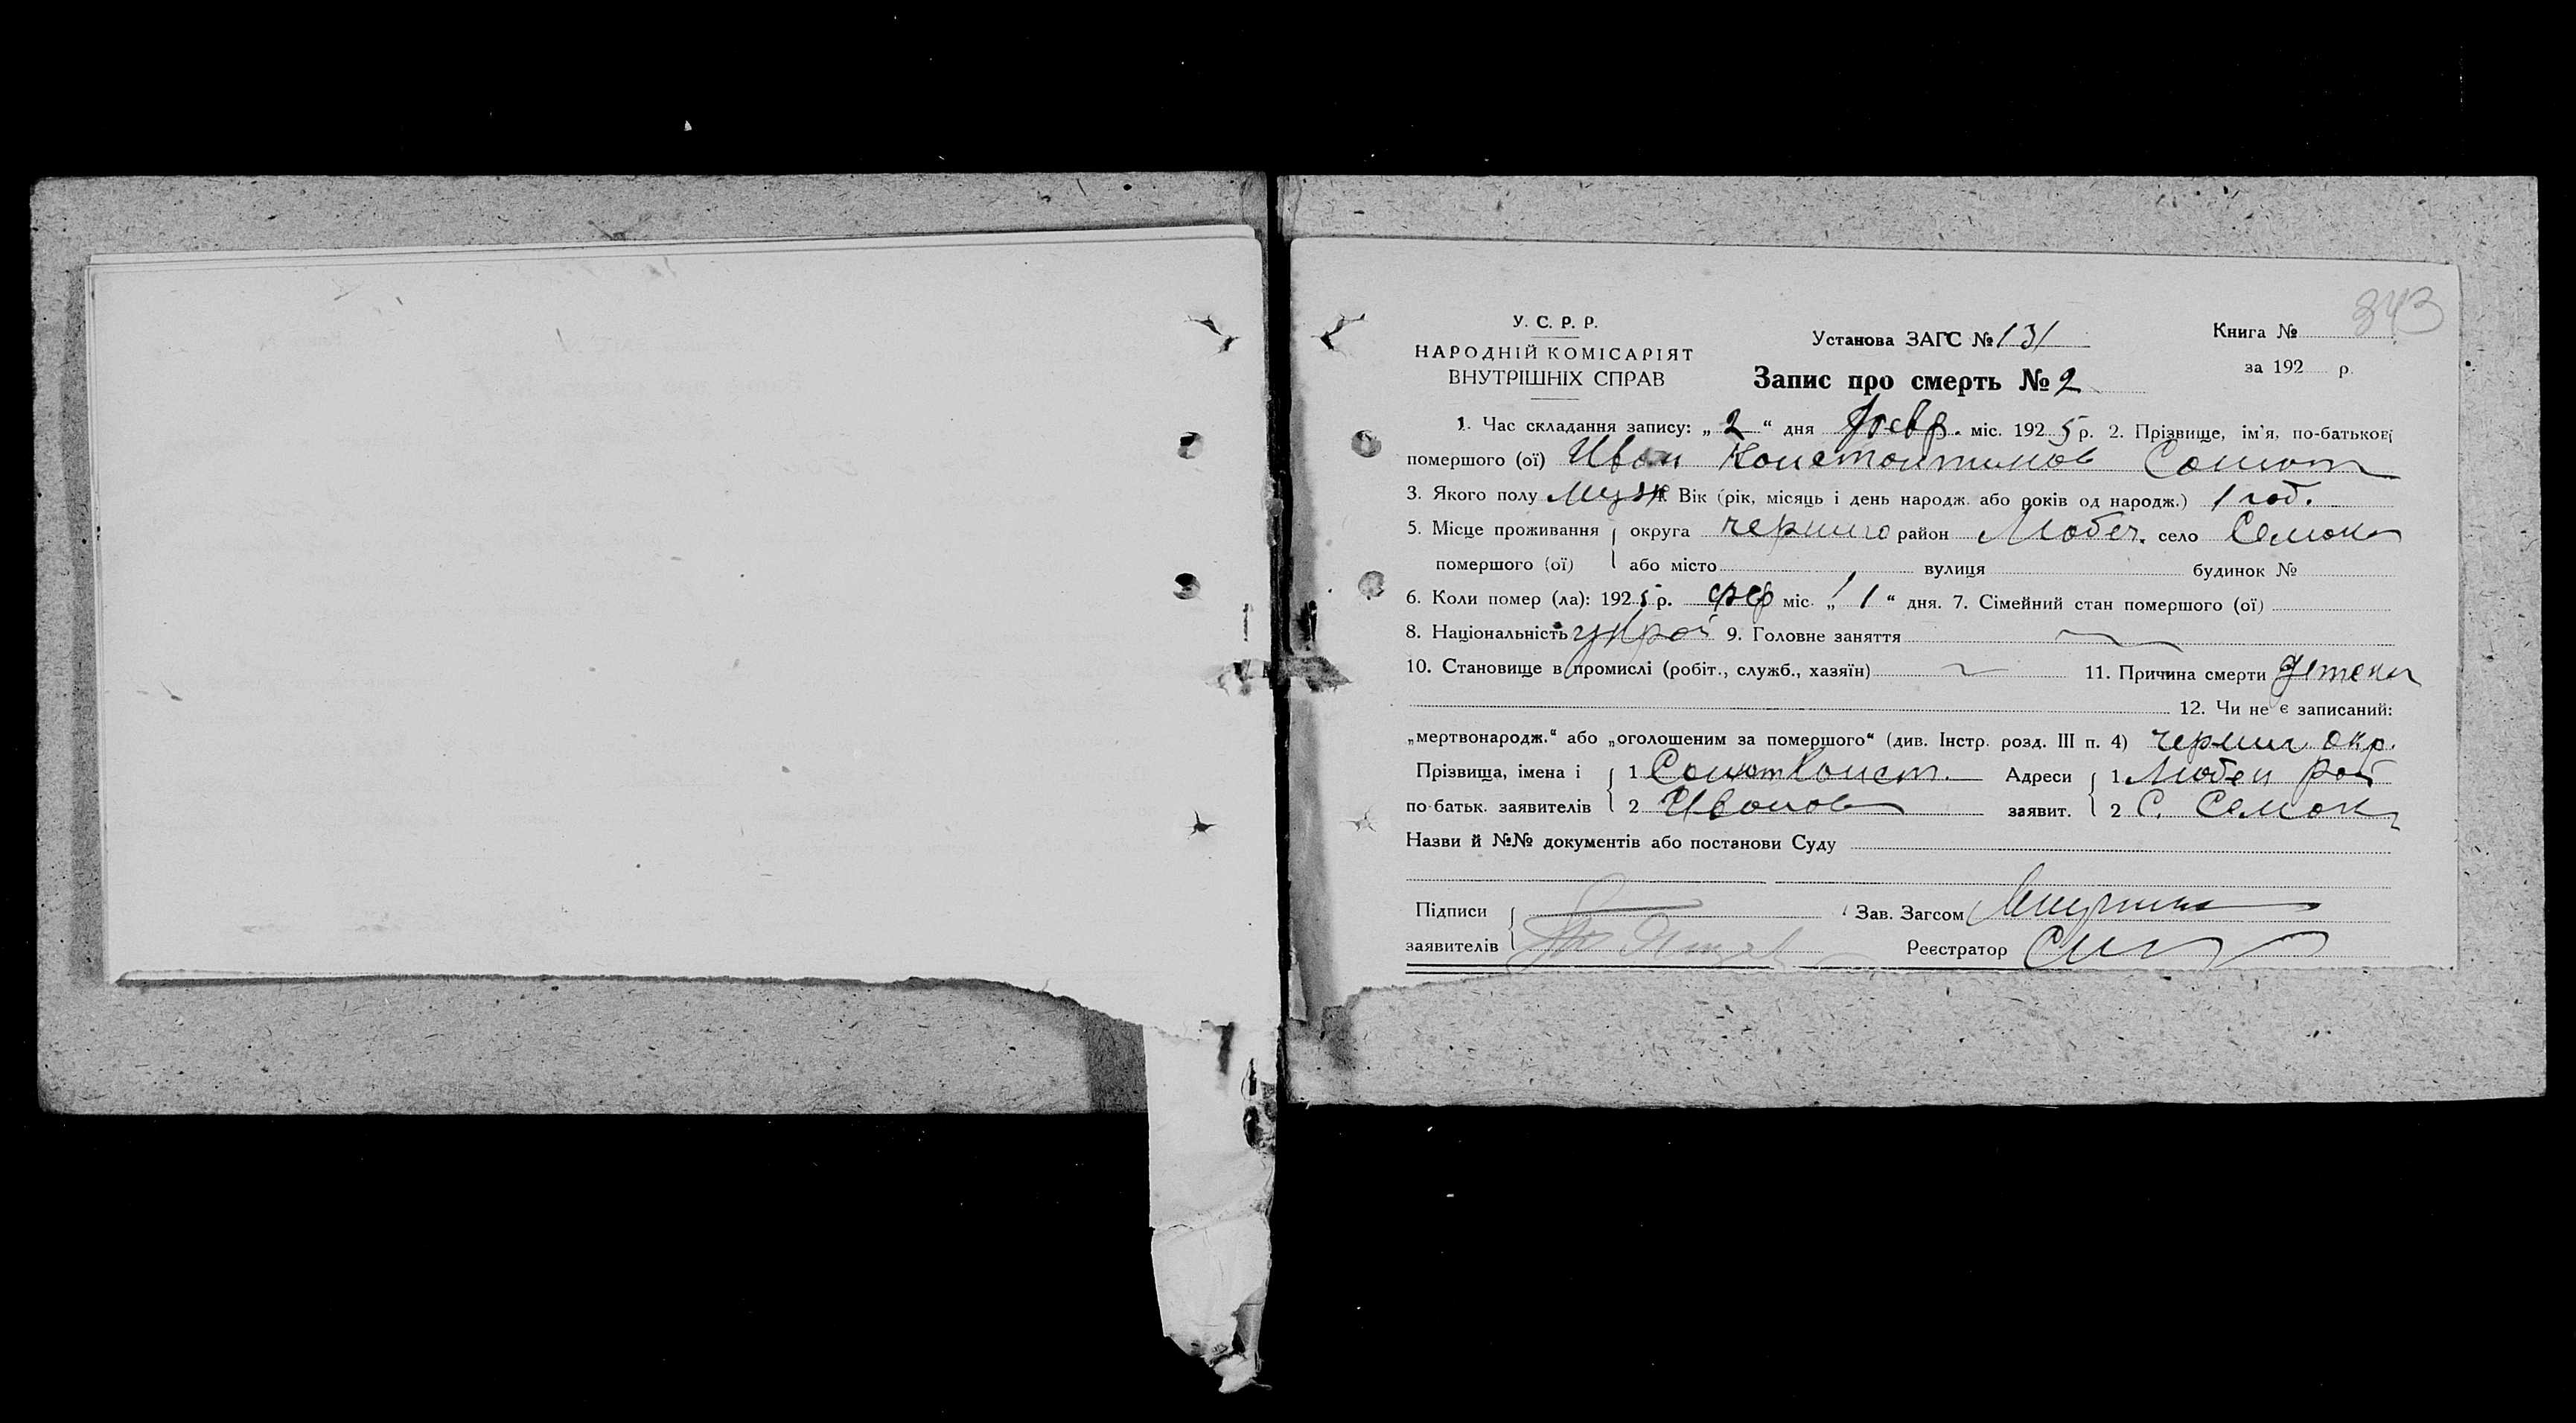 843
У. С. Р. Р.
НАРОДНІЙ КОМІСАРІЯТ
ВНУТРІШНІХ СПРАВ
Установа ЗАГС № 131
Книга №
за 192 р.
Запис про смерть № 2
1. Час складання запису: „ 2 “ дня Февр. міс. 192 5 р. 2. Прізвище, ім'я, по-батькові
помершого (ої) Иван Константинов
3. Якого полу Муж 4. Вік (рік, місяць і день народж. або років од народж.) 1 год.
5. Місце проживання округа Черниго район Любеч. село
помершого (ої) або місто вулиця будинок №
6. Коли помер (ла): 192 5 р. фев міс. „ 1 “ дня. 7. Сімейний стан помершого (ої)
8. Національність украй 9. Головне заняття
10. Становище в промислі (робіт., служб., хазяїн) 11. Причина смерти
12. Чи не є записаний:
„мертвонародж.“ або „оголошеним за помершого“ (див. Інстр. розд. III п. 4) Черниг. окр.
Прізвища, імена і 1 Конст. Адреси 1 Любеч рай
по батьк. заявителів 2 Иванов заявит. 2 С.
Назви й №№ документів або постанови Суду
Підписи Зав. Загсом
заявителів Реєстратор